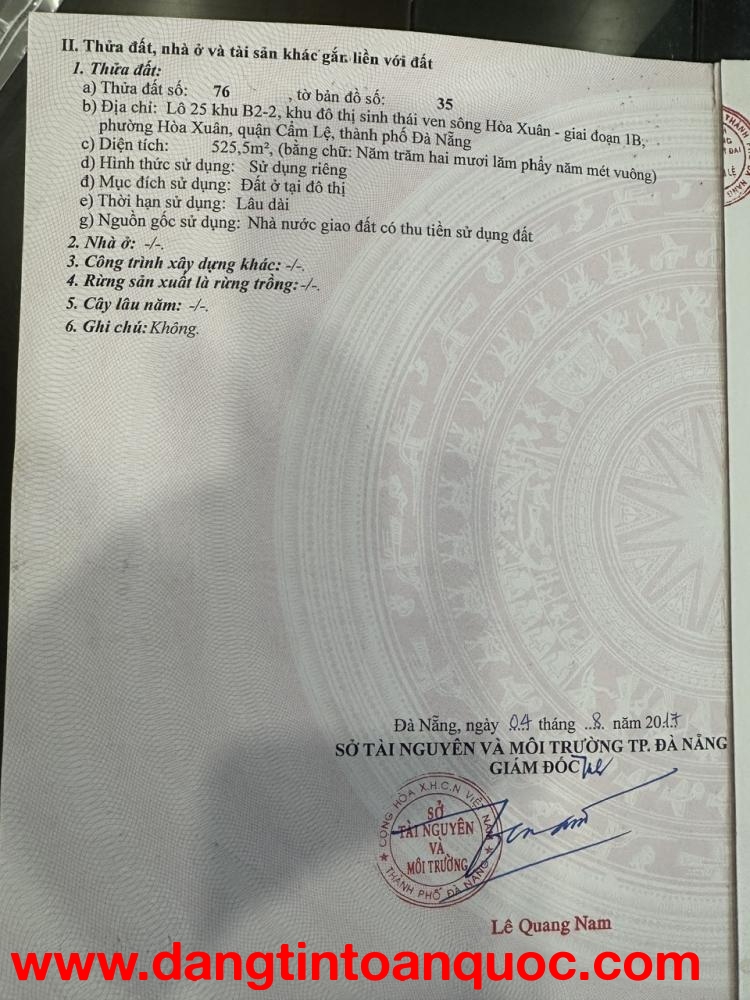 II. Thửa đất, nhà ở và tài sản khác gắn liền với đất
1. Thửa đất:
a) Thửa đất số: 76 , tờ bản đồ số: 35
b) Địa chỉ: Lô 25 khu B2-2, khu đô thị sinh thái ven sông Hòa Xuân - giai đoạn 1B,
phường Hòa Xuân, quận Cẩm Lệ, thành phố Đà Nẵng
c) Diện tích: 525,5m², (bằng chữ: Năm trăm hai mươi lăm phẩy năm mét vuông)
d) Hình thức sử dụng: Sử dụng riêng
đ) Mục đích sử dụng: Đất ở tại đô thị
e) Thời hạn sử dụng: Lâu dài
g) Nguồn gốc sử dụng: Nhà nước giao đất có thu tiền sử dụng đất
2. Nhà ở: -/-.
3. Công trình xây dựng khác: -/-.
4. Rừng sản xuất là rừng trồng: -/-.
5. Cây lâu năm: -/-.
6. Ghi chú: Không.
Đà Nẵng, ngày 04 tháng 8 năm 2017
SỞ TÀI NGUYÊN VÀ MÔI TRƯỜNG TP. ĐÀ NẴNG
GIÁM ĐỐC
CỘNG HÒA X.H.C.N VIỆT NAM
SỞ
TÀI NGUYÊN
VÀ
MÔI TRƯỜNG
THÀNH PHỐ ĐÀ NẴNG
Lê Quang Nam
www.dangtintoanquoc.com